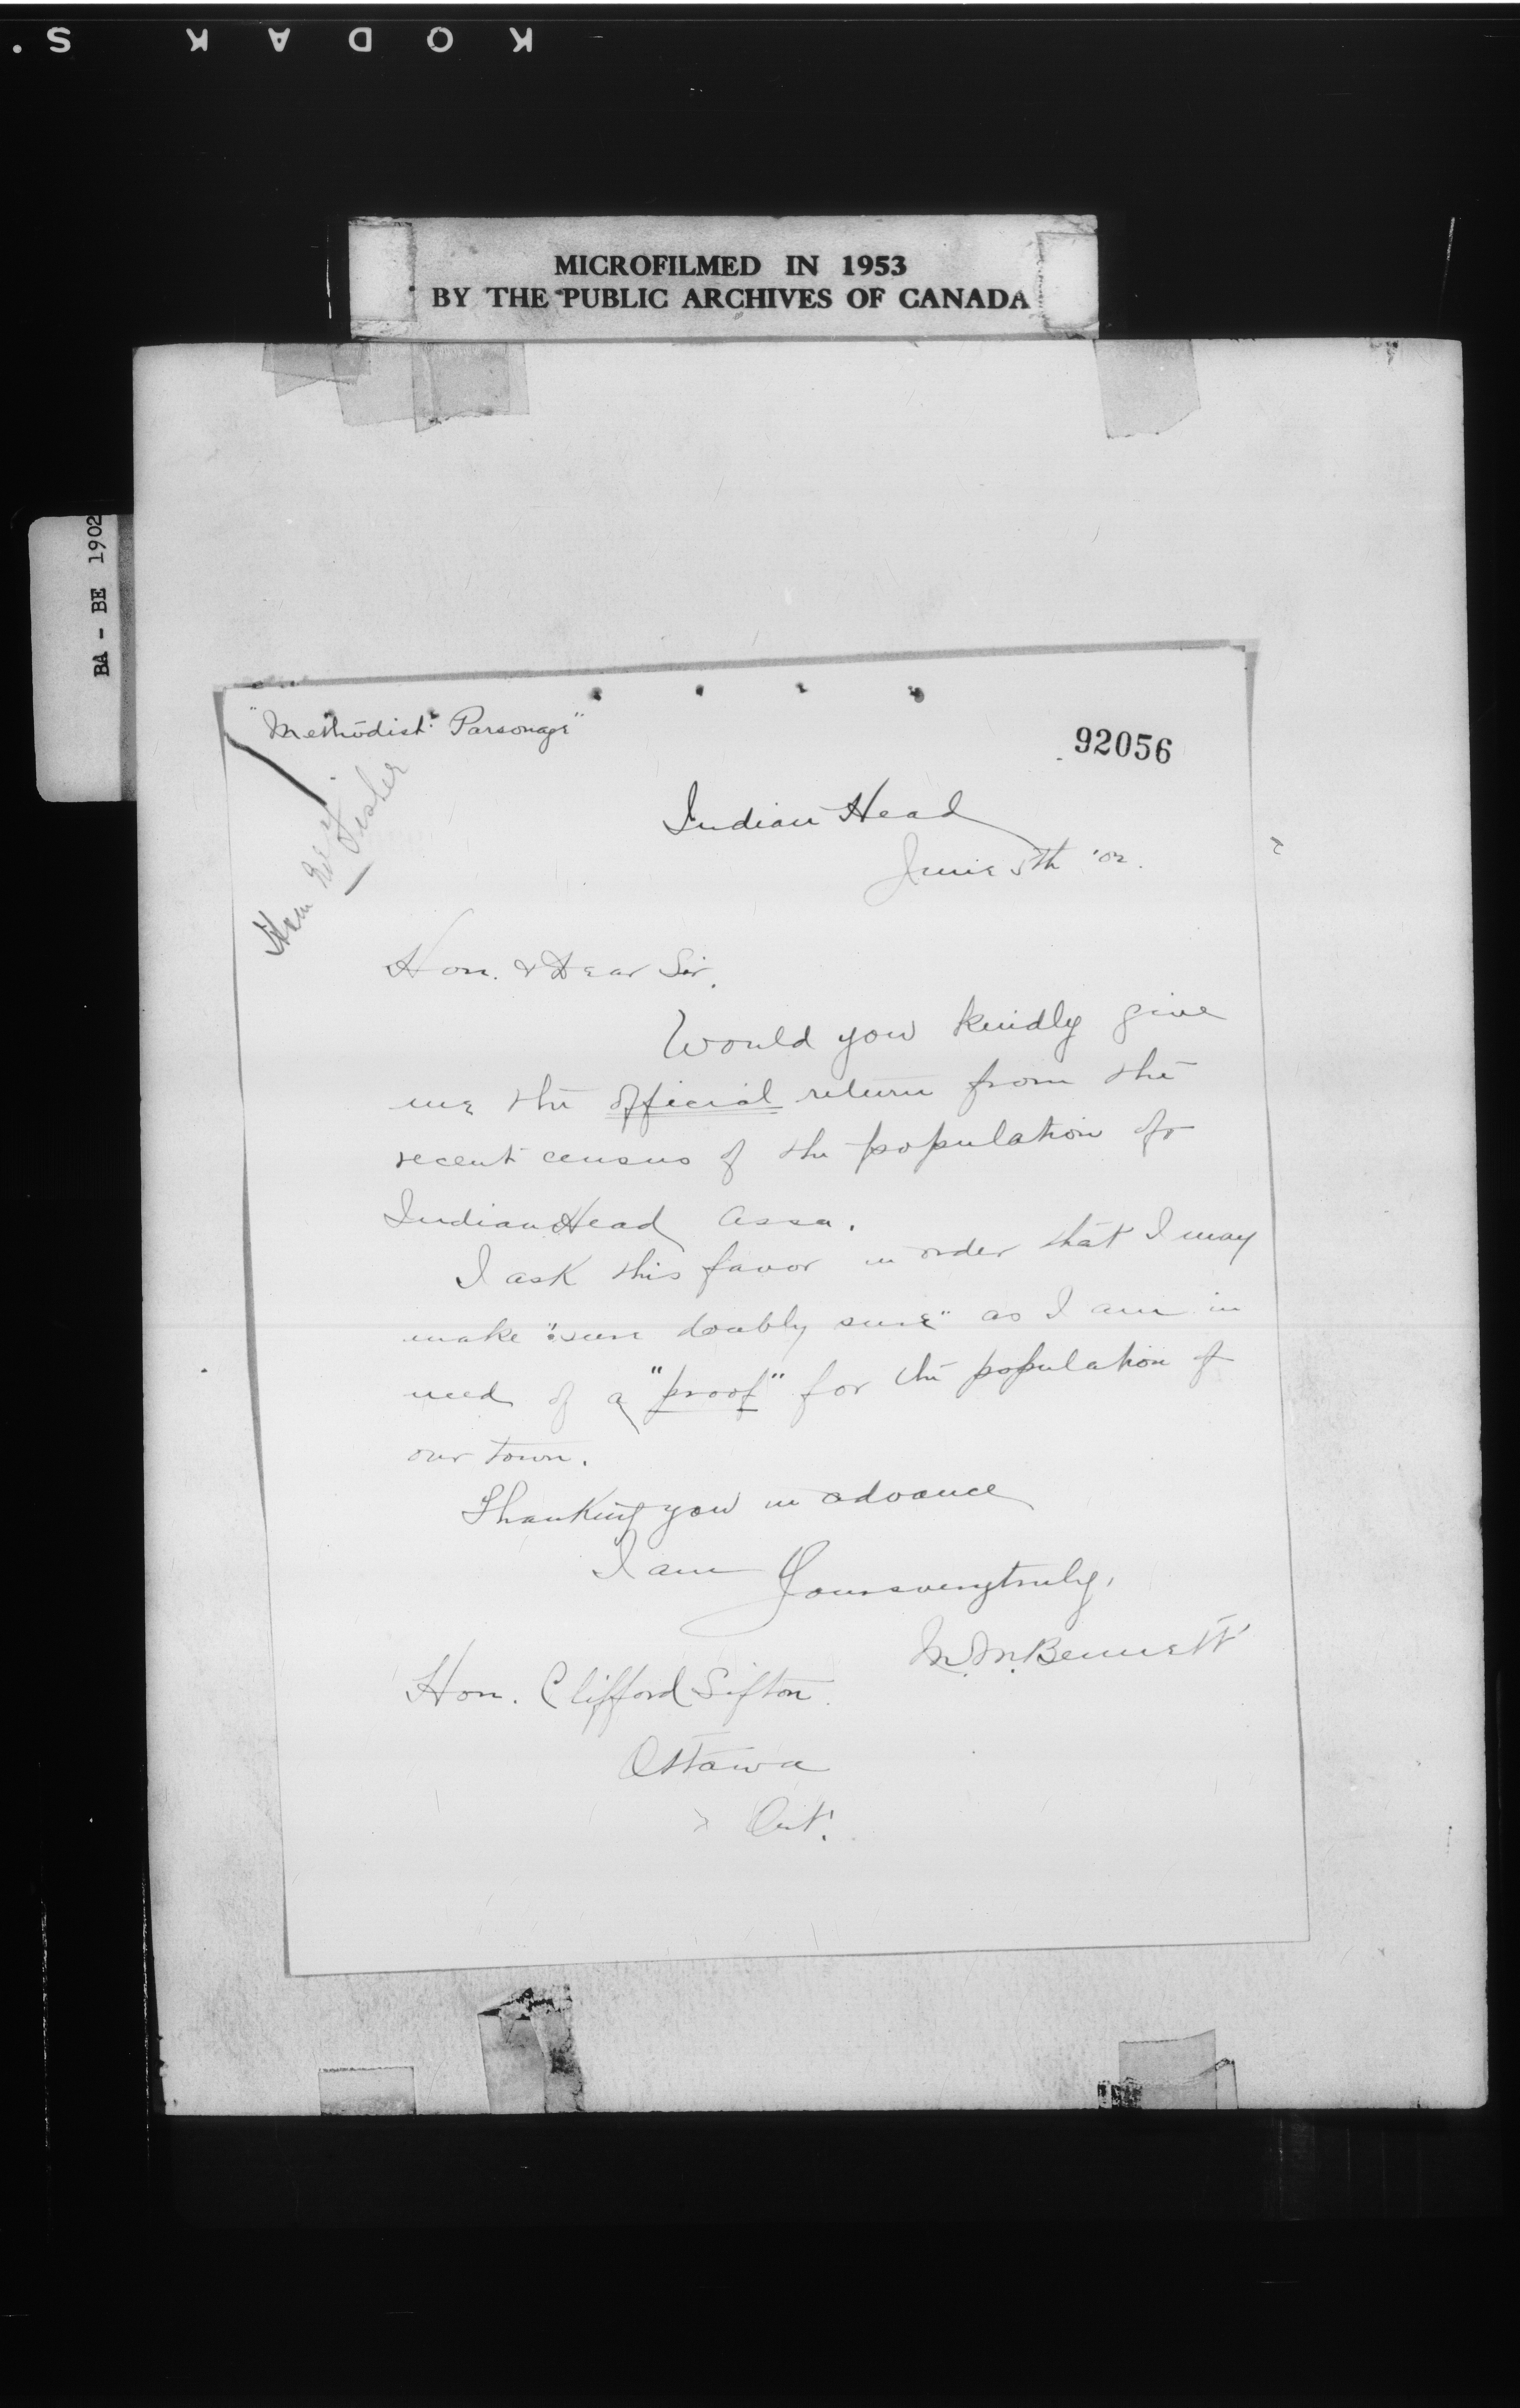 KODAK S.
MICROFILMED IN 1953
BY THE PUBLIC ARCHIVES OF CANADA
BA - BE 1902
"Methodist Parsonage"
92056
Fisher
Indian Head
June 5th '02.
Hon. & Dear Sir.
Would you kindly give
me the official return from the
recent census of the population of
Indian Head Assa.
I ask this favor in order that I may
make " doubly sure" as I am in
need of a "proof" for the population of
our town.
Thanking you in advance
I am Yours very truly,
M. M. Bennett
Hon. Clifford Sifton.
Ottawa
Ont.